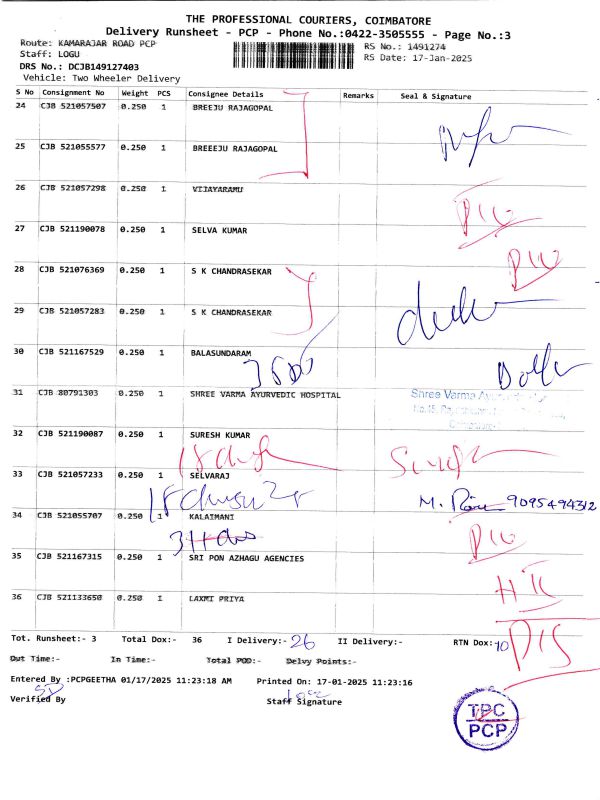 THE PROFESSIONAL COURIERS, COIMBATORE
Delivery Runsheet - PCP - Phone No.:0422-3505555 - Page No.:3
Route: KAMARAJAR ROAD PCP RS No.: 1491274
Staff: LOGU RS Date: 17-Jan-2025
DRS No.: DCJB149127403
Vehicle: Two Wheeler Delivery
S No Consignment No Weight PCS Consignee Details Remarks Seal & Signature
24 CJB 521057507 0.250 1 BREEJU RAJAGOPAL
25 CJB 521055577 0.250 1 BREEEJU RAJAGOPAL
26 CJB 521057298 0.250 1 VIJAYARAMU
27 CJB 521190078 0.250 1 SELVA KUMAR
28 CJB 521076369 0.250 1 S K CHANDRASEKAR
29 CJB 521057283 0.250 1 S K CHANDRASEKAR
30 CJB 521167529 0.250 1 BALASUNDARAM
31 CJB 80791303 0.250 1 SHREE VARMA AYURVEDIC HOSPITAL
Shree Varma
32 CJB 521190087 0.250 1 SURESH KUMAR
33 CJB 521057233 0.250 1 SELVARAJ
M. 9095494312
34 CJB 521055707 0.250 1 KALAIMANI
35 CJB 521167315 0.250 1 SRI PON AZHAGU AGENCIES
36 CJB 521133650 0.250 1 LAXMI PRIYA
Tot. Runsheet:- 3 Total Dox:- 36 I Delivery:- 26 II Delivery:- RTN Dox:- 10
Out Time:- In Time:- Total POD:- Delvy Points:-
Entered By :PCPGEETHA 01/17/2025 11:23:18 AM Printed On: 17-01-2025 11:23:16
Verified By Staff Signature
TPC
PCP